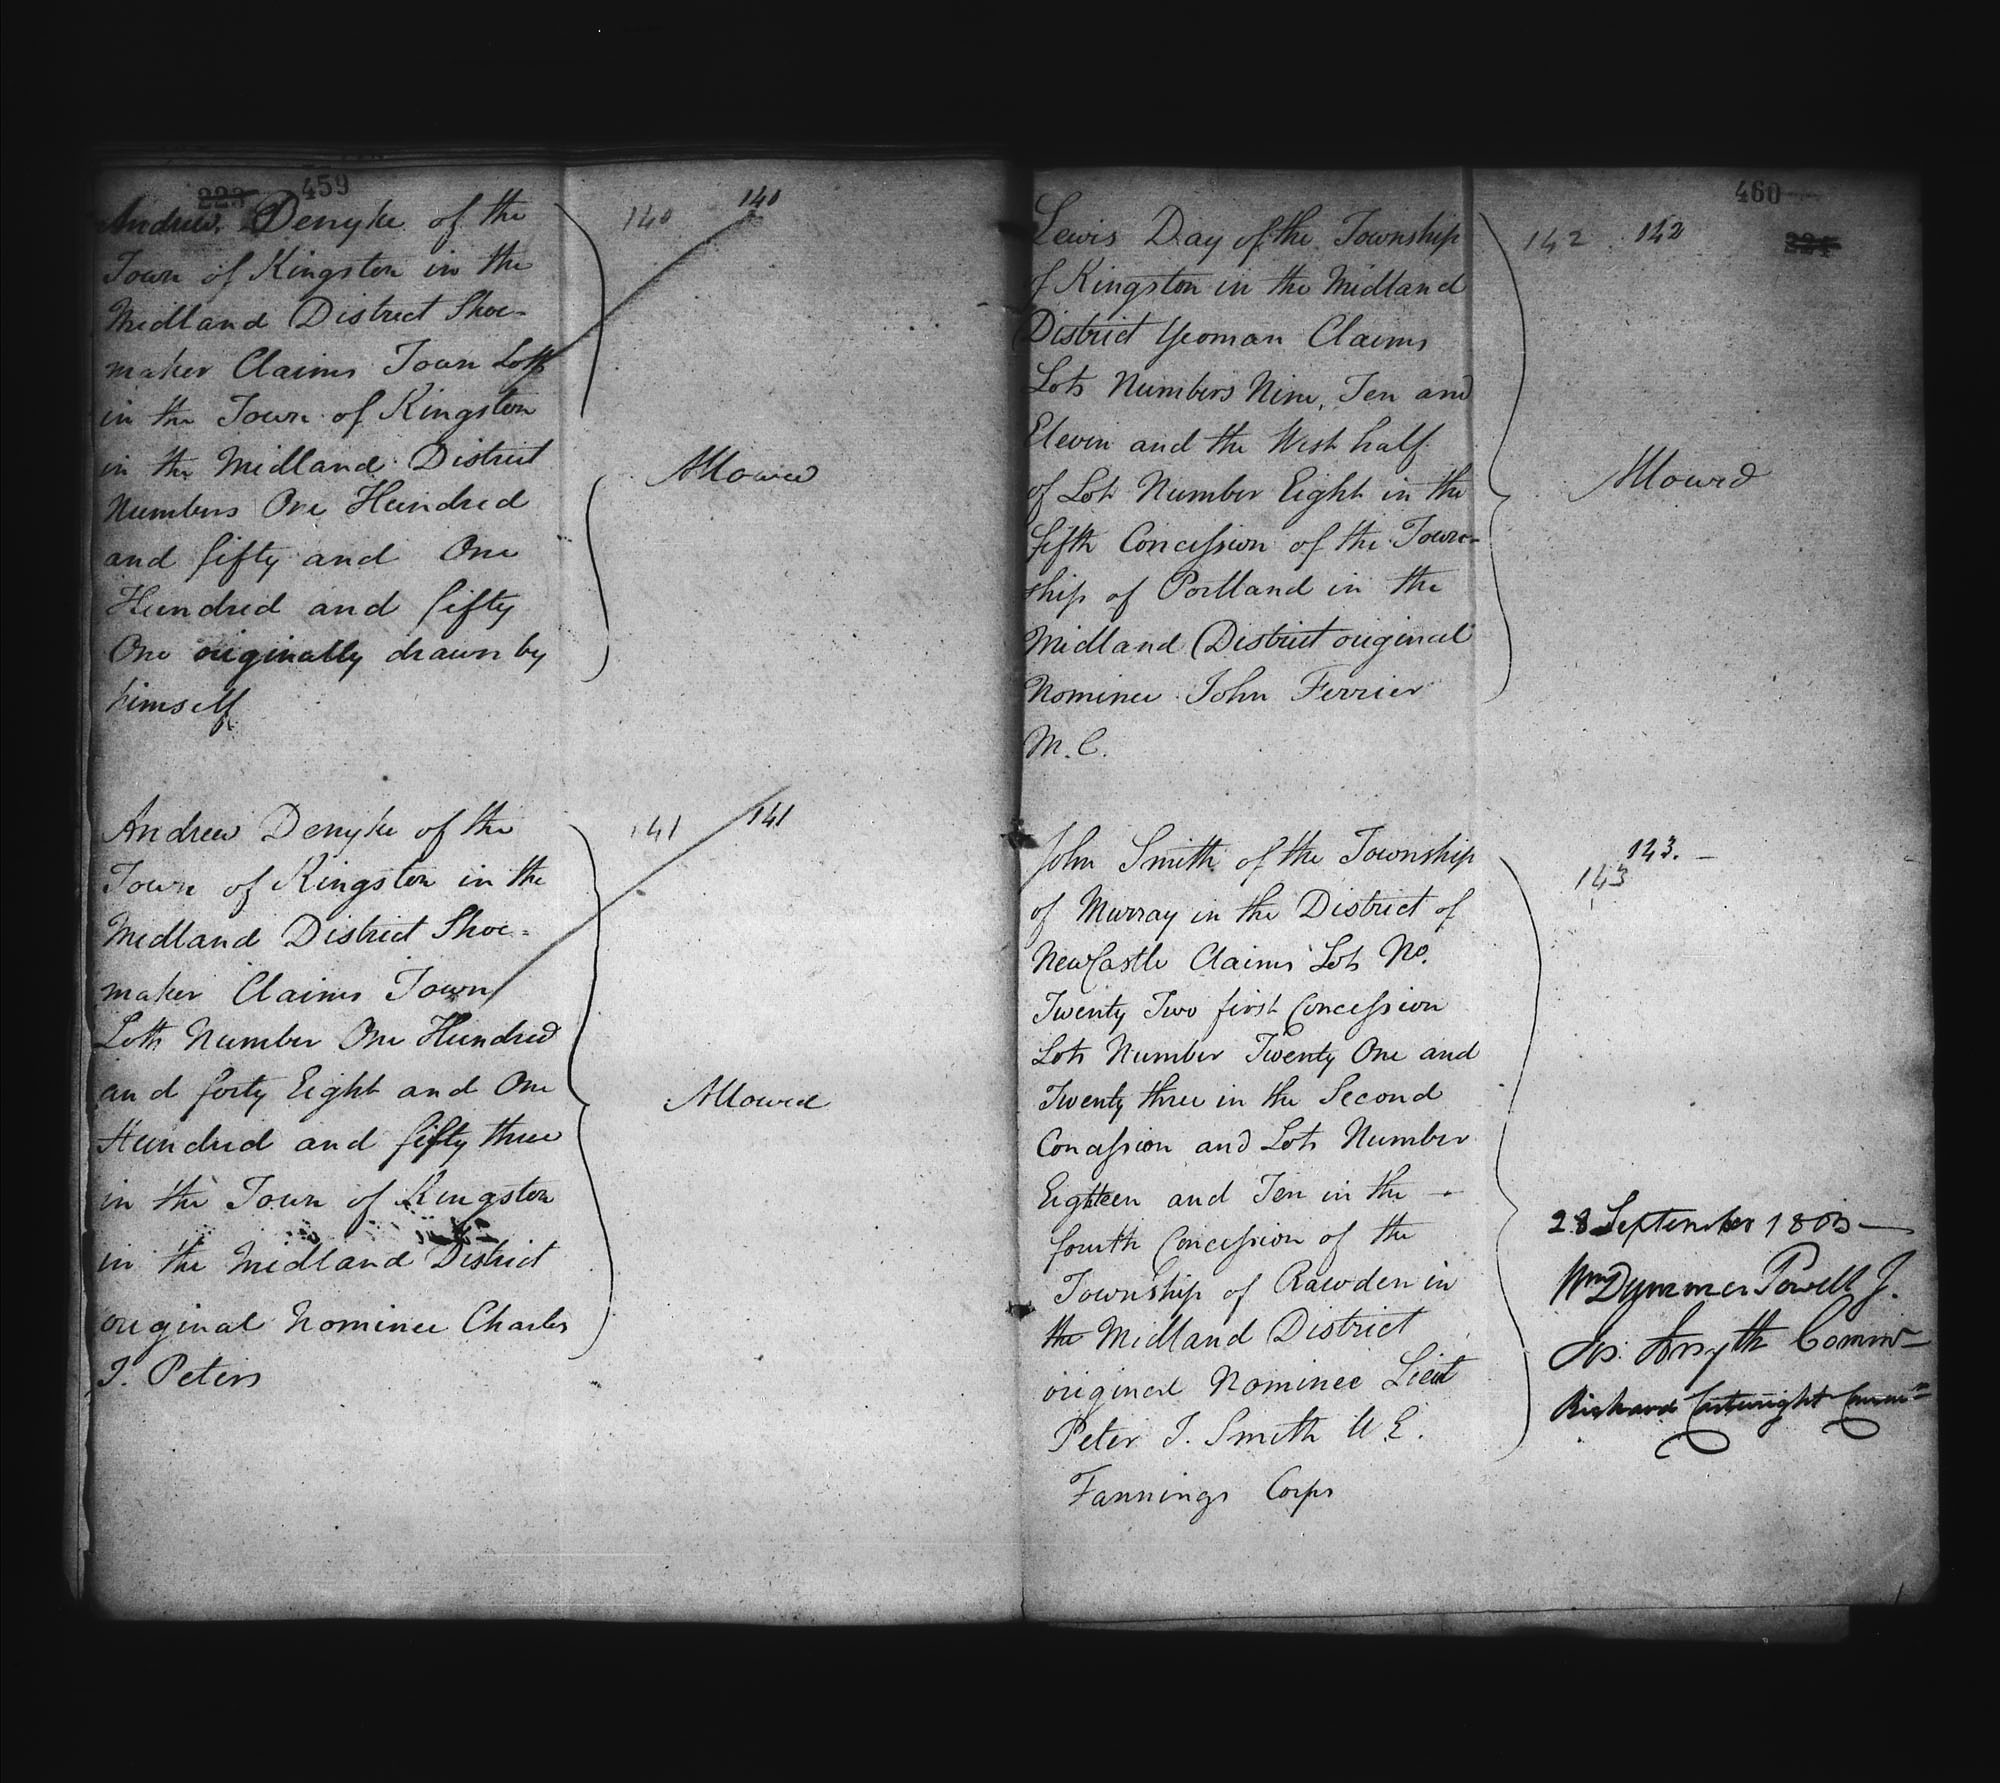 223 459
Andrew Denyke of the
Town of Kingston in the
Midland District Shoe-
maker Claims Town Lotts
in the Town of Kingston
in the Midland District
Numbers One Hundred
and fifty and One
Hundred and fifty
One originally drawn by
himself
140 140
Allowed
Andrew Denyke of the
Town of Kingston in the
Midland District Shoe-
maker Claims Town
Lotts Number One Hundred
and forty Eight and One
Hundred and fifty three
in the Town of Kingston
in the Midland District
original Nominee Charles
J. Peters
141 141
Allowed
460
224
Lewis Day of the Township
of Kingston in the Midland
District Yeoman Claims
Lots Numbers Nine, Ten and
Eleven and the West half
of Lot Number Eight in the
fifth Concession of the Town-
ship of Portland in the
Midland District original
Nominee John Ferrier
M.C.
142 142
Allowed
John Smith of the Township
of Murray in the District of
NewCastle Claims Lot No.
Twenty Two first Concession
Lots Number Twenty One and
Twenty three in the Second
Concession and Lots Number
Eighteen and Ten in the -
fourth Concession of the
Township of Rawden in
the Midland District
original Nominee Lieut
Peter J. Smith U E.
Fannings Corps
143. -
143
28 September 1803 -
Wm Dummer Powell J.
Jos. Forsyth Commr
Richard Cartwright Commr